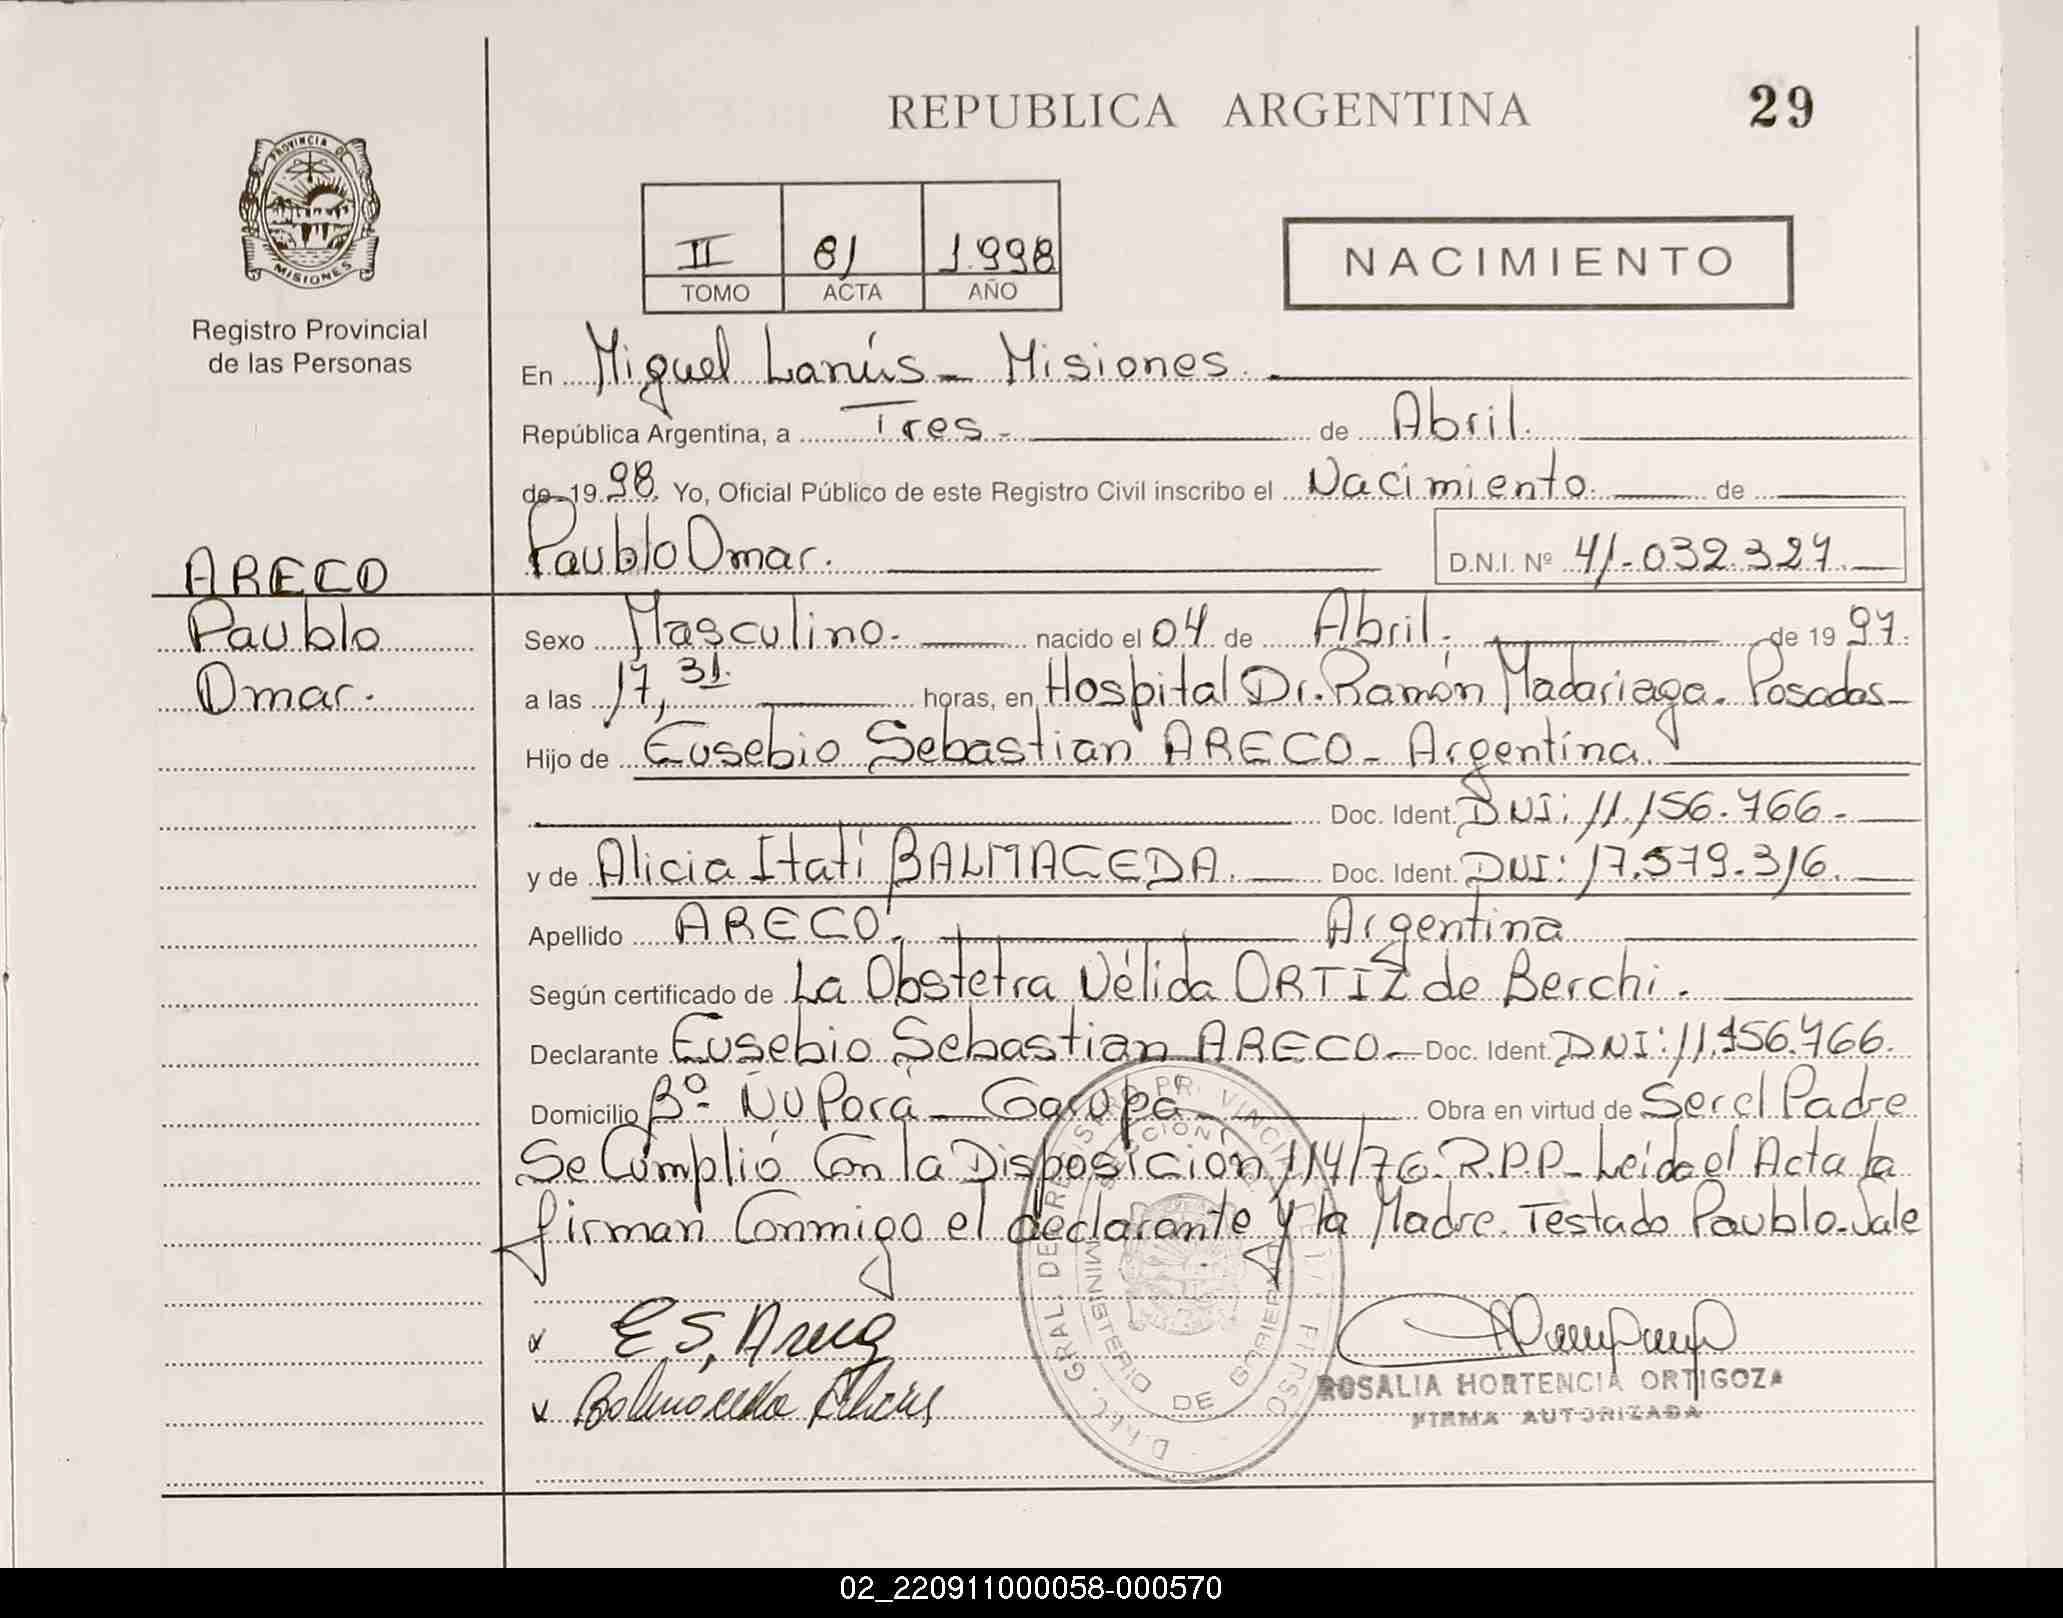 REPUBLICA ARGENTINA
29
PROVINCIA DE
MISIONES
Registro Provincial
de las Personas
II 81 1.998
TOMO ACTA AÑO
NACIMIENTO
En Miguel Lanús - Misiones.
República Argentina, a Tres - de Abril.
de 19 98. Yo, Oficial Público de este Registro Civil inscribo el Nacimiento. de
Paublo Omar.
D.N.I. Nº 41.032.327.
ARECO
Paublo
Omar.
Sexo Masculino. nacido el 04 de Abril. de 19 97.
a las 17, 31. horas, en Hospital Dr. Ramón Madariaga. Posadas
Hijo de Eusebio Sebastian ARECO - Argentina.
Doc. Ident. DNI: 11.156.766.
y de Alicia Itatí BALMACEDA. Doc. Ident. DNI: 17.579.316.
Apellido ARECO. Argentina
Según certificado de La Obstetra Nélida ORTIZ de Berchi.
Declarante Eusebio Sebastian ARECO - Doc. Ident. DNI: 11.156.766.
Domicilio Bº Ñu Porá - Garupá - Obra en virtud de Ser el Padre
Se Cumplió Con la Disposición 114/76. R.P.P - Leída el Acta la
firman Conmigo el declarante y la Madre. Testado Paublo. Vale
E S,
Balmaceda
ROSALIA HORTENCIA ORTIGOZA
FIRMA AUTORIZADA
MINISTERIO DE GOBIERNO
02_220911000058-000570